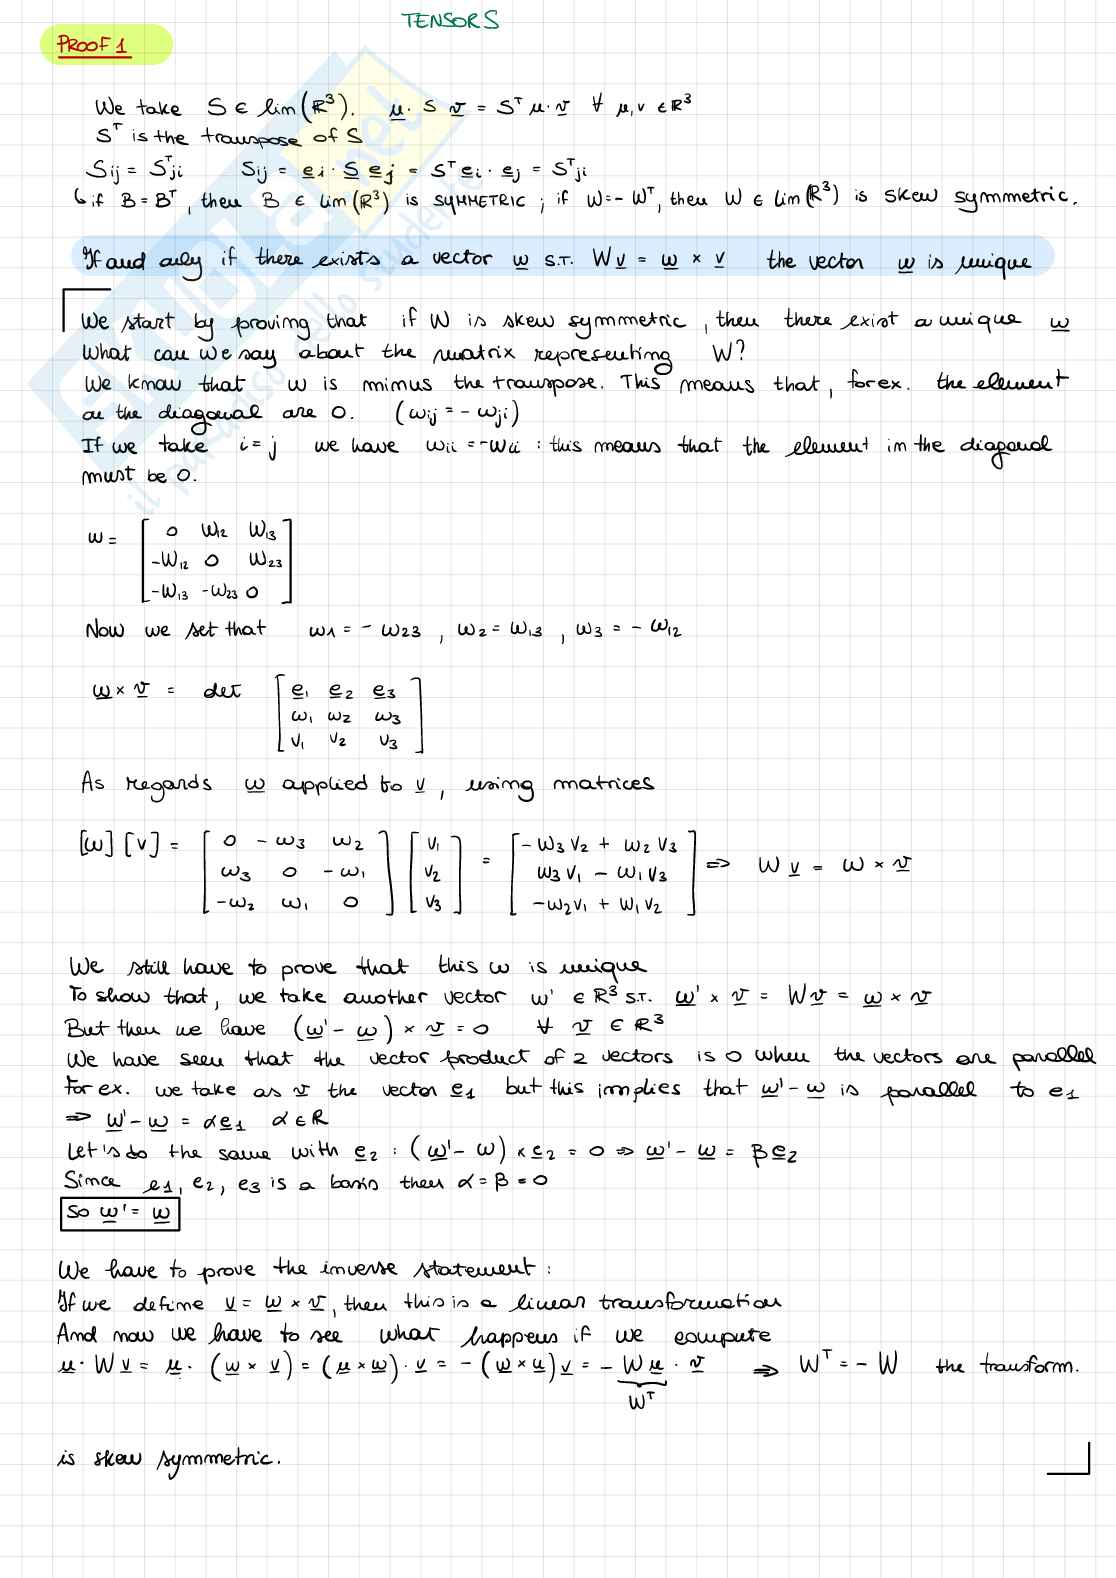 TENSORS
PROOF 1
We take S ∈ lim(R³). u · S v = Sᵀ u · v ∀ u, v ∈ R³
Sᵀ is the transpose of S
Sij = Sᵀji Sij = ei · S ej = Sᵀ ei · ej = Sᵀji
↳ if B = Bᵀ, then B ∈ Lim(R³) is SYMMETRIC ; if W = - Wᵀ, then W ∈ Lim(R³) is skew symmetric.
If and only if there exists a vector w s.t. W v = w × v the vector w is unique
We start by proving that if W is skew symmetric, then there exist a unique w
What can we say about the matrix representing W?
We know that w is minus the transpose. This means that, for ex. the element
on the diagonal are 0. (wij = - wji)
If we take i = j we have wii = -wii : this means that the element in the diagonal
must be 0.
w = [ 0 W12 W13
-W12 0 W23
-W13 -W23 0 ]
Now we set that w1 = - w23 , w2 = w13 , w3 = - w12
w × v = det [ e1 e2 e3
w1 w2 w3
v1 v2 v3 ]
As regards w applied to v, using matrices
[w] [v] = [ 0 -w3 w2 ; w3 0 -w1 ; -w2 w1 0 ] [ v1 ; v2 ; v3 ] = [ -w3 v2 + w2 v3 ; w3 v1 - w1 v3 ; -w2 v1 + w1 v2 ] ⇒ W v = w × v
We still have to prove that this w is unique
To show that, we take another vector w' ∈ R³ s.t. w' × v = W v = w × v
But then we have (w' - w) × v = 0 ∀ v ∈ R³
We have seen that the vector product of 2 vectors is 0 when the vectors are parallel
For ex. we take as v the vector e1 but this implies that w' - w is parallel to e1
⇒ w' - w = α e1 α ∈ R
Let's do the same with e2 : (w' - w) × e2 = 0 ⇒ w' - w = β e2
Since e1, e2, e3 is a basis then α = β = 0
So w' = w
We have to prove the inverse statement :
If we define v = w × v, then this is a linear transformation
And now we have to see what happens if we compute
u · W v = u · (w × v) = (u × w) · v = - (w × u) v = - W u · v ⇒ Wᵀ = - W the transform.
Wᵀ
is skew symmetric.
SKUOLA.net
il paradiso dello studente